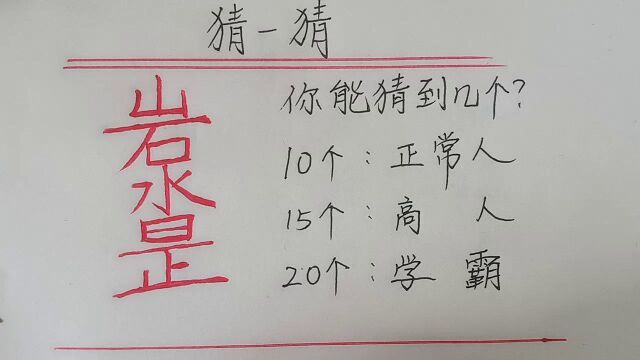 猜一猜
岩水日正
你能猜到几个?
10个:正常人
15个:高 人
20个:学 霸